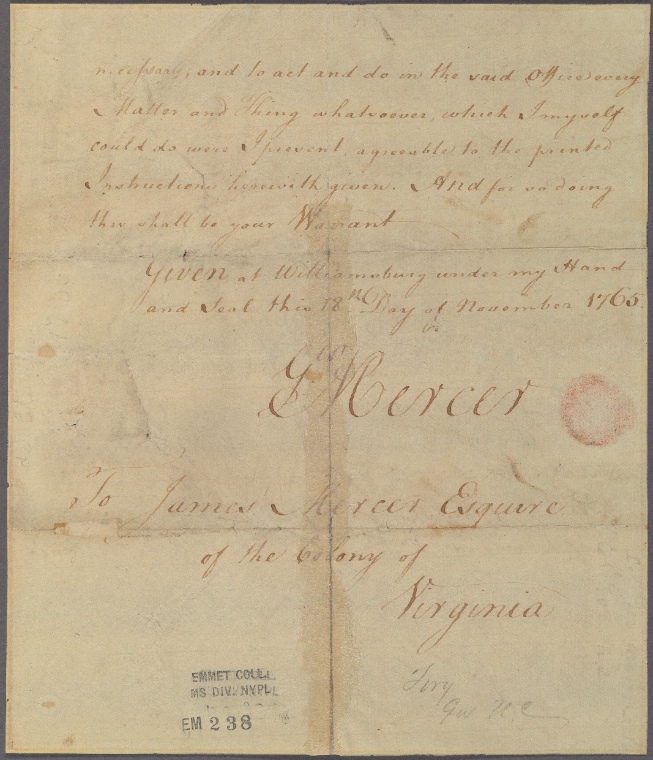 necessary, and to act and do in the said Office every
Matter and Thing whatsoever, which I myself
could do were I present, agreeable to the printed
Instructions herewith given. And for so doing
this shall be your Warrant
Given at Williamsburg under my Hand
and Seal this 18th Day of November 1765.
Geo Mercer
To James Mercer Esquire
of the Colony of
Virginia
Tory
EMMET COLL.
MS DIV. NYPL
EM 238